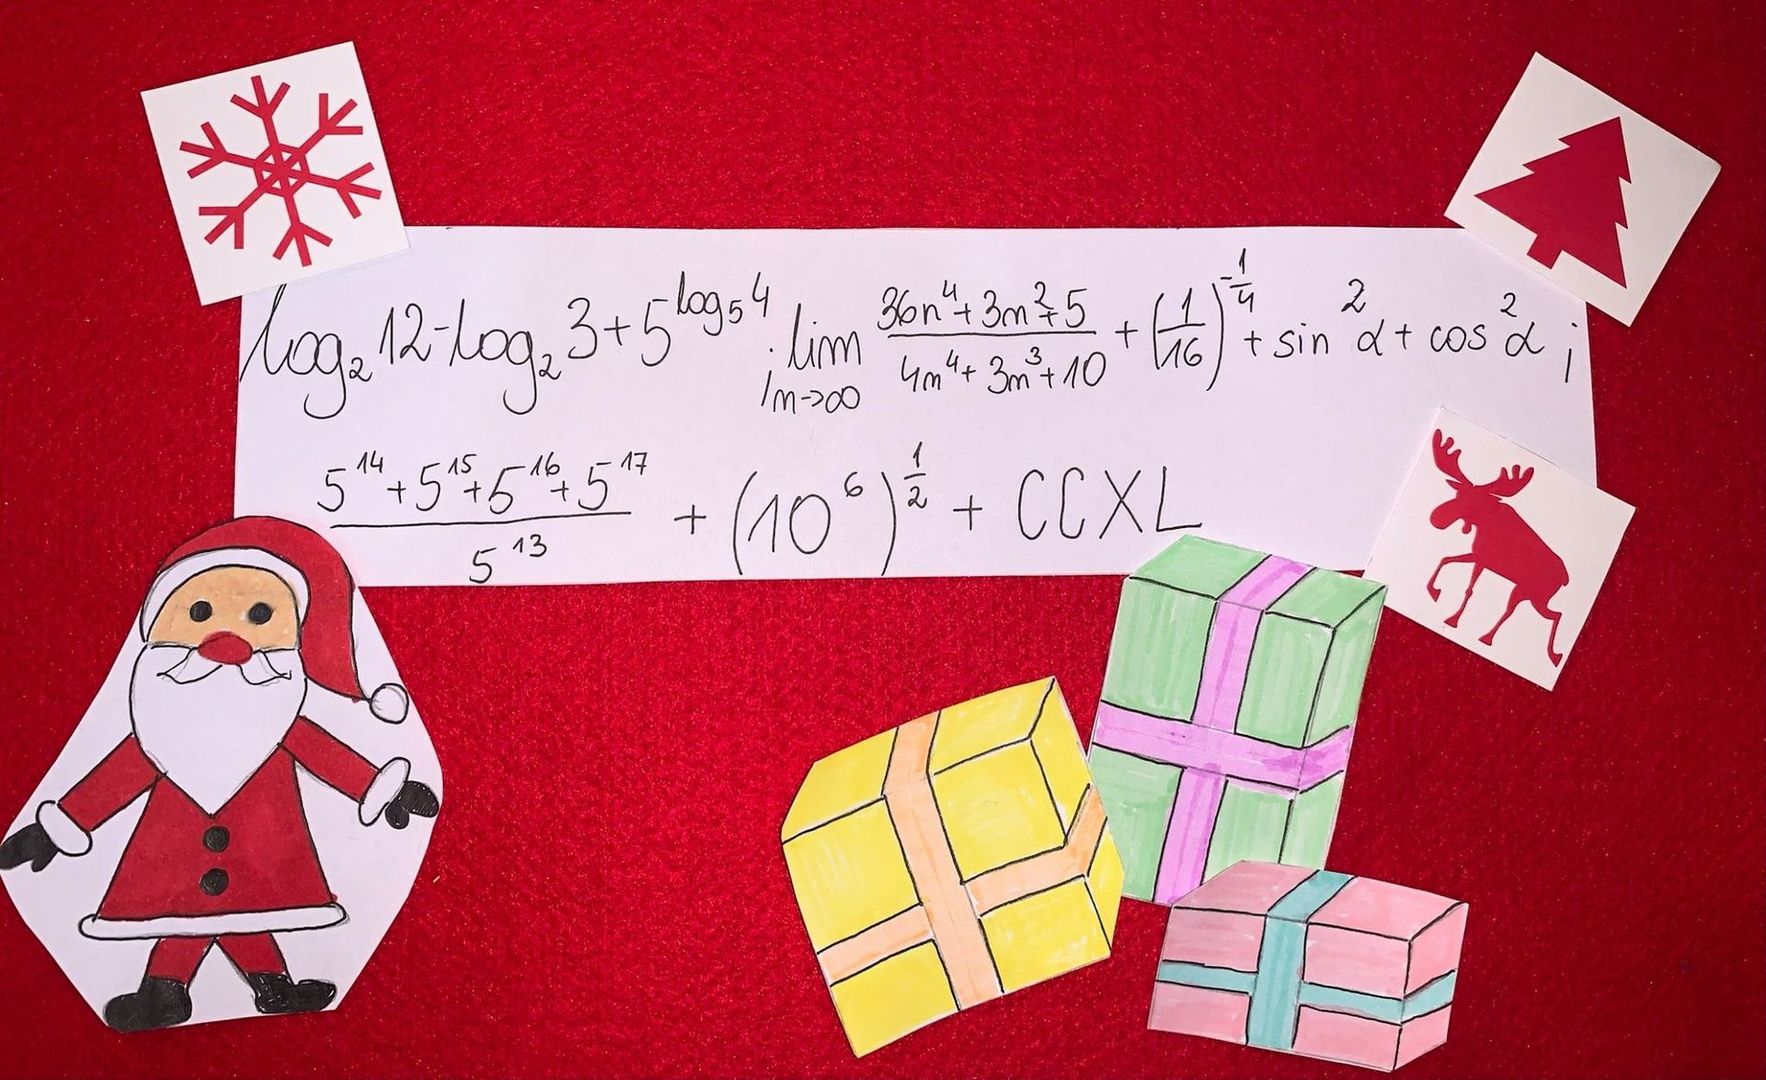 log₂ 12 - log₂ 3 + 5^(log₅ 4) ; lim n→∞ (36n⁴ + 3n² + 5)/(4n⁴ + 3n³ + 10) + (1/16)^(-1/4) + sin² α + cos² α ;
(5¹⁴ + 5¹⁵ + 5¹⁶ + 5¹⁷)/5¹³ + (10⁶)^(1/2) + CCXL